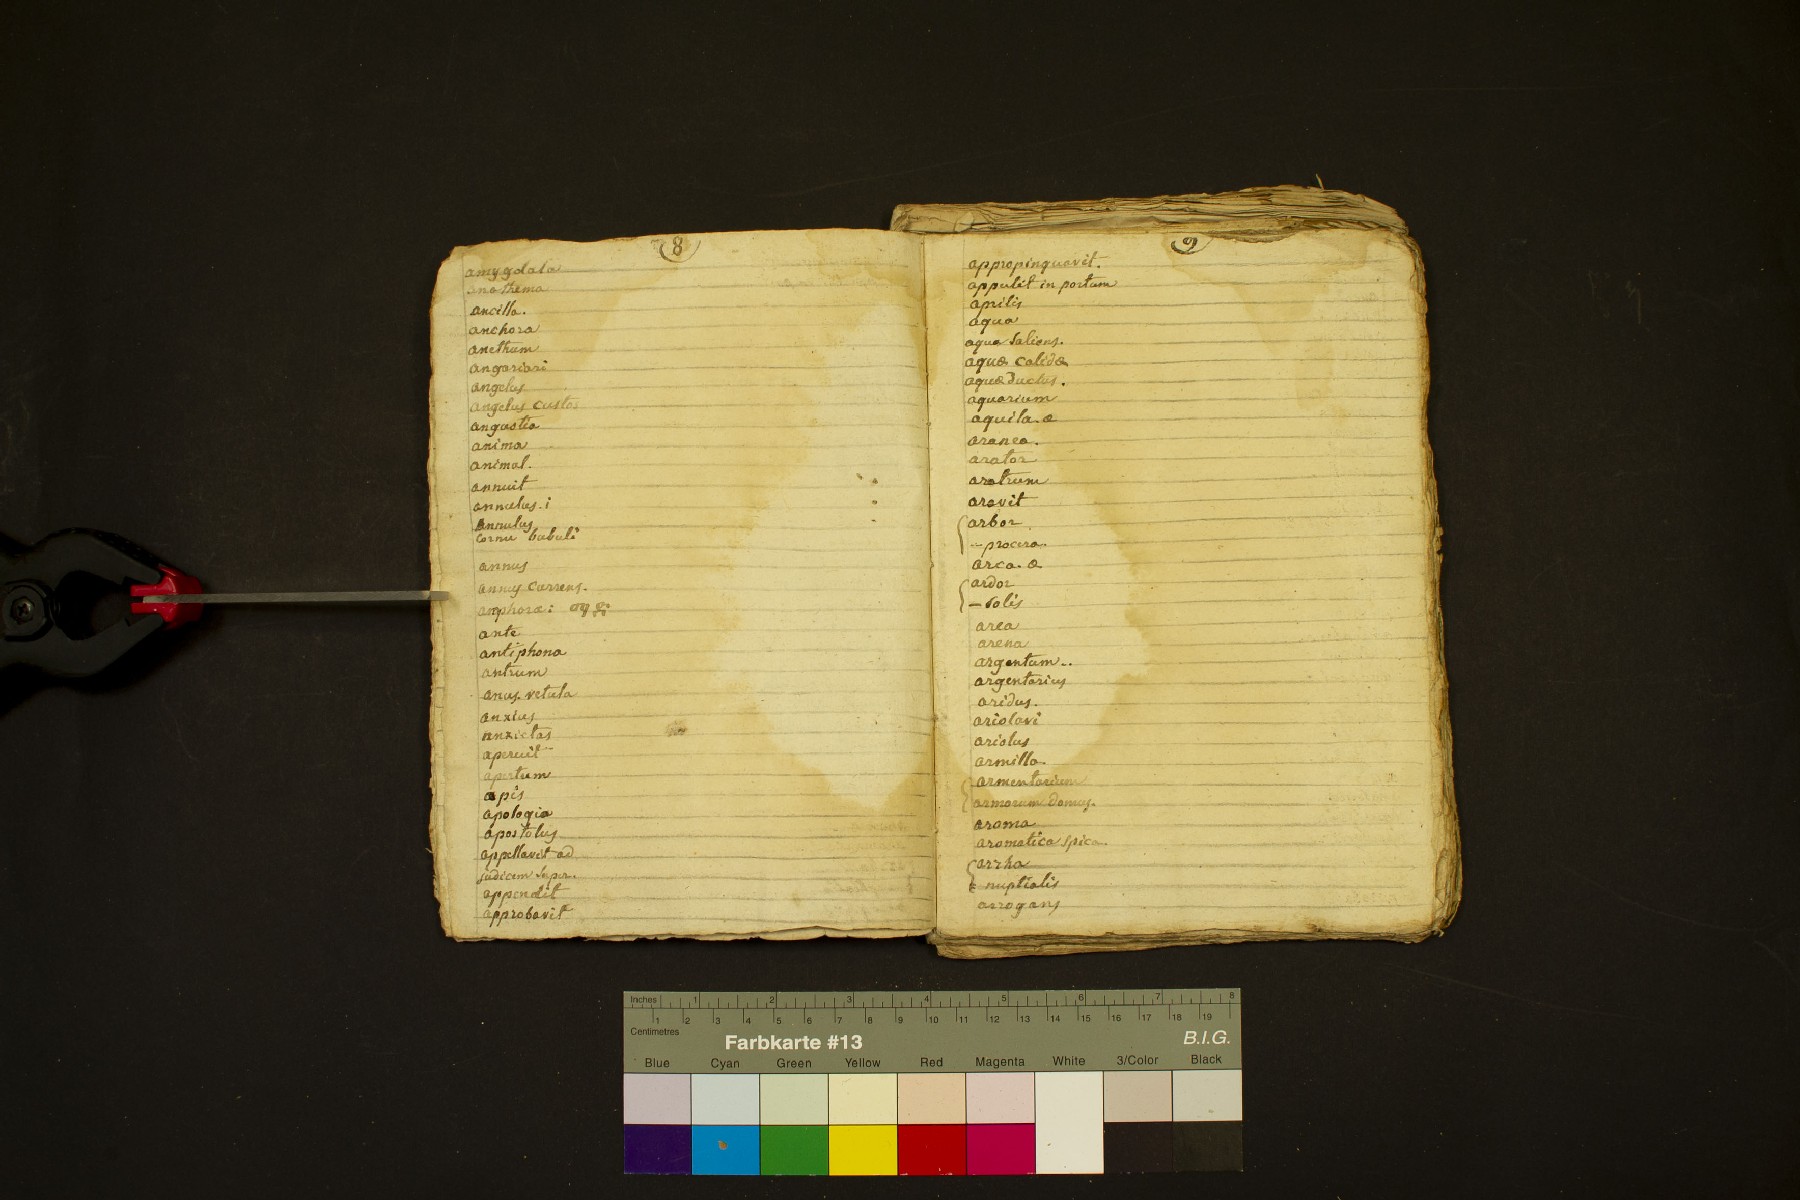 8
amygdala
anathema
ancilla.
anchora
anethum
angariari
angelus
angelus custos
angustia
anima
animal.
annuit
annulus. i
Annulus
cornu bubali
annus
annus currens.
amphora:
ante
antiphona
antrum
anus. vetula
anxius
anxietas
aperuit
apertum
apis
apologia
apostolus
appellavit ad
judicem super.
appendit
approbavit
9
appropinquavit.
appulit in portum
aprilis
aqua
aqua saliens.
aquæ calidæ
aquæductus.
aquarium
aquila. æ
aranea.
arator
aratrum
aravit
arbor
- procera
arca. æ
ardor
- solis
area
arena
argentum..
argentarius
aridus.
ariolari
ariolus
armilla.
armentarium
armorum domus.
aroma
aromatica spica.
arrha
- nuptialis
arrogans
Inches 1 2 3 4 5 6 7 8
1 2 3 4 5 6 7 8 9 10 11 12 13 14 15 16 17 18 19
Centimetres
Farbkarte #13 B.I.G.
Blue Cyan Green Yellow Red Magenta White 3/Color Black